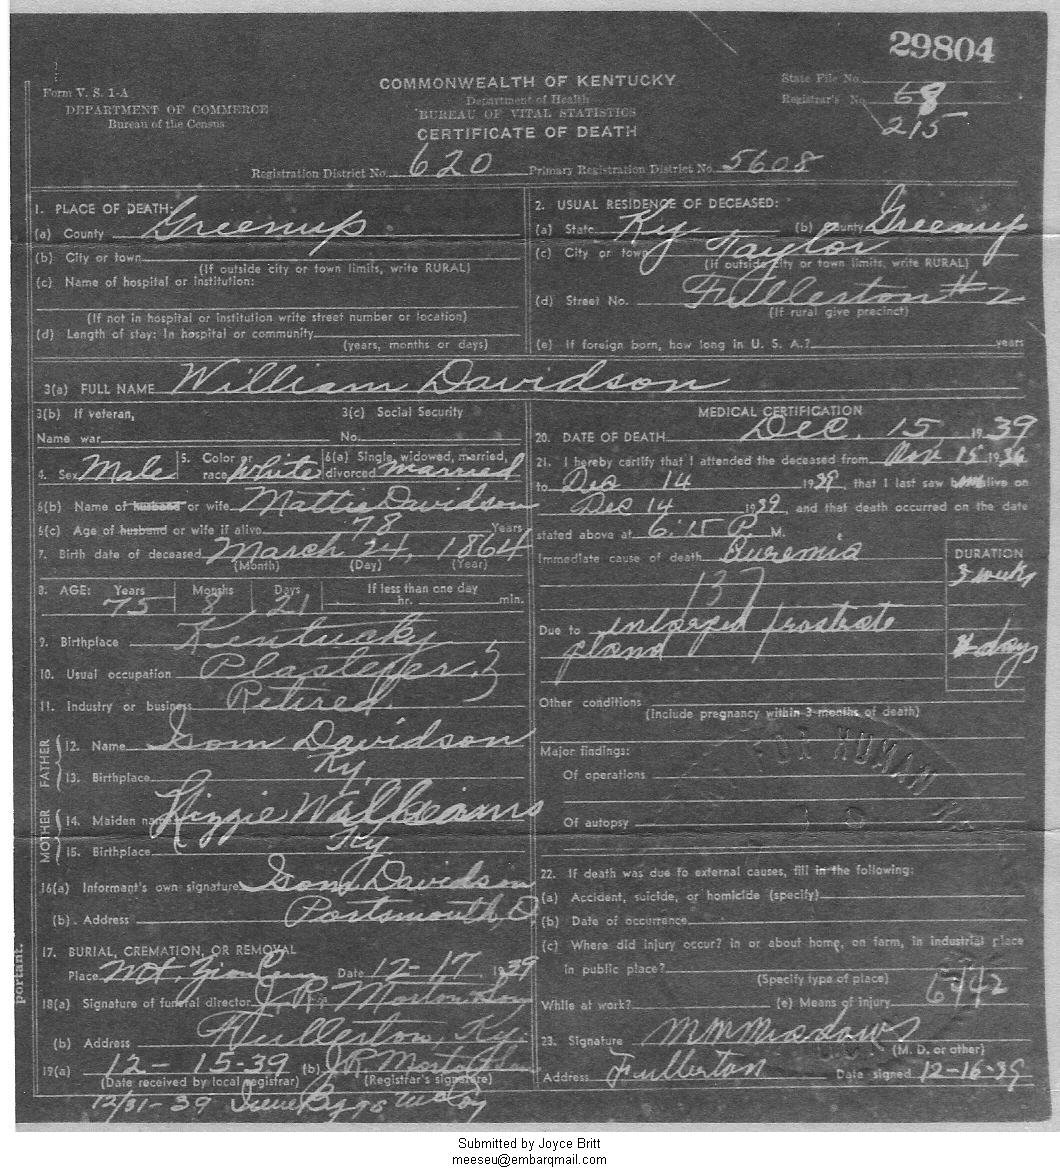 29804
Form V. S. 1-A
DEPARTMENT OF COMMERCE
Bureau of the Census
COMMONWEALTH OF KENTUCKY
Department of Health
BUREAU OF VITAL STATISTICS
CERTIFICATE OF DEATH
State File No.
Registrar's No. 68
215
Registration District No. 620 Primary Registration District No. 5608
1. PLACE OF DEATH:
(a) County Greenup
(b) City or town
(If outside city or town limits, write RURAL)
(c) Name of hospital or institution:
(If not in hospital or institution write street number or location)
(d) Length of stay: In hospital or community
(years, months or days)
2. USUAL RESIDENCE OF DECEASED:
(a) State Ky (b) County Greenup
(c) City or town Taylor
(If outside city or town limits, write RURAL)
(d) Street No. Fullerton # 2
(If rural give precinct)
(e) If foreign born, how long in U. S. A.? years
3(a) FULL NAME William Davidson
3(b) If veteran,
Name war
3(c) Social Security
No.
4. Sex Male 5. Color or race White 6(a) Single, widowed, married, divorced married
6(b) Name of husband or wife Mattie Davidson
6(c) Age of husband or wife if alive 78 Years
7. Birth date of deceased March 24, 1864
(Month) (Day) (Year)
8. AGE: Years Months Days If less than one day
75 8 21 hr. min.
9. Birthplace Kentucky
10. Usual occupation Plasterer
11. Industry or business Retired
FATHER
12. Name Isom Davidson
13. Birthplace Ky,
MOTHER
14. Maiden name Kizzie Williams
15. Birthplace Ky
16(a) Informant's own signature Isom Davidson
(b) Address Portsmouth, O
17. BURIAL, CREMATION, OR REMOVAL
Place Mt. Zion Cem Date 12-17, 1939
18(a) Signature of funeral director J. R. Morton & Son
(b) Address Fullerton, Ky.
19(a) 12-15-39 (b) J.R. Morton
(Date received by local registrar) (Registrar's signature)
12/31-39 Irene Biggs McCoy
MEDICAL CERTIFICATION
20. DATE OF DEATH Dec. 15, 1939
21. I hereby certify that I attended the deceased from Nov 15 1936
to Dec 14 1939, that I last saw him alive on
Dec 14 1939, and that death occurred on the date
stated above at 6:15 P. M.
Immediate cause of death Euremia
DURATION
3 weeks
137
Due to inlarged prostrate
gland
days
Other conditions
(Include pregnancy within 3 months of death)
Major findings:
Of operations
Of autopsy
22. If death was due to external causes, fill in the following:
(a) Accident, suicide, or homicide (specify)
(b) Date of occurrence
(c) Where did injury occur? in or about home, on farm, in industrial place
in public place?
(Specify type of place)
While at work? (e) Means of injury
6442
23. Signature M M Meadows
(M. D. or other)
Address Fullerton Date signed 12-16-39
portant.
Submitted by Joyce Britt
meeseu@embarqmail.com